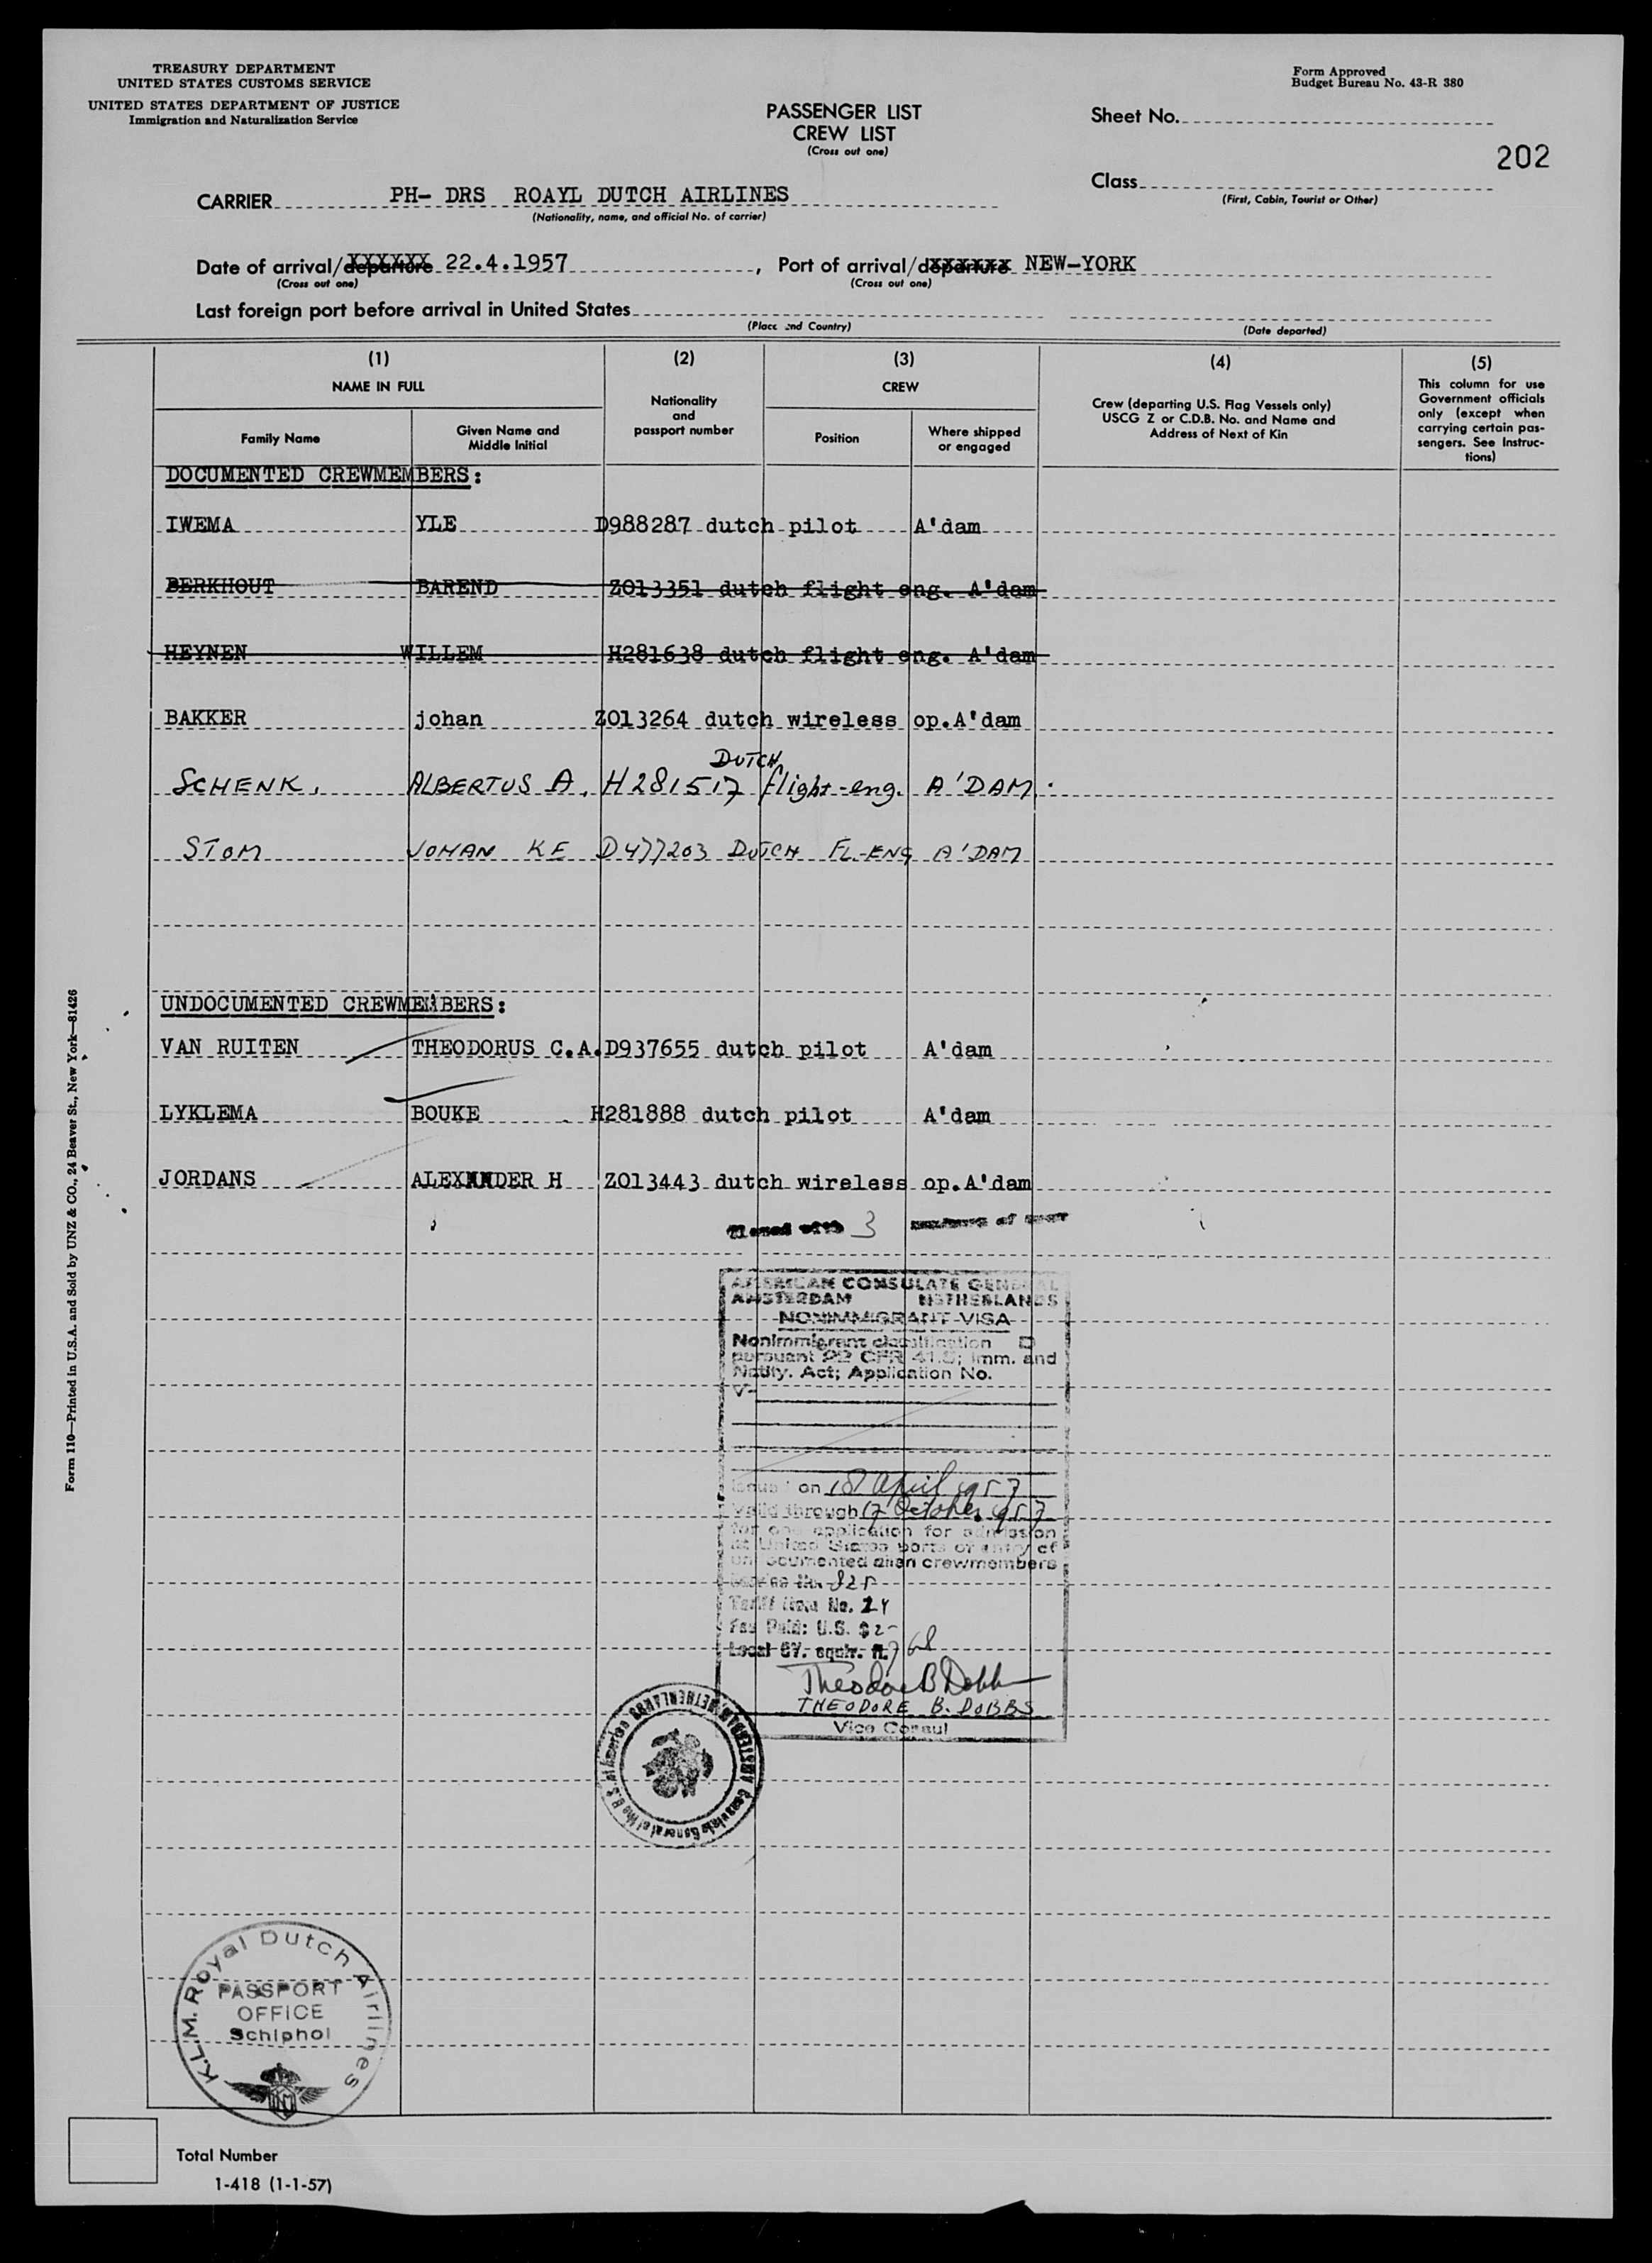 TREASURY DEPARTMENT
UNITED STATES CUSTOMS SERVICE
UNITED STATES DEPARTMENT OF JUSTICE
Immigration and Naturalization Service
Form Approved
Budget Bureau No. 43-R 380
PASSENGER LIST
CREW LIST
(Cross out one)
Sheet No.
202
Class
(First, Cabin, Tourist or Other)
CARRIER PH- DRS ROAYL DUTCH AIRLINES
(Nationality, name, and official No. of carrier)
Date of arrival/departure 22.4.1957, Port of arrival/departure NEW-YORK
(Cross out one) (Cross out one)
Last foreign port before arrival in United States
(Place and Country) (Date departed)
(1) (2) (3) (4) (5)
NAME IN FULL
Family Name
Given Name and
Middle Initial
Nationality
and
passport number
CREW
Position
Where shipped
or engaged
Crew (departing U.S. Flag Vessels only)
USCG Z or C.D.B. No. and Name and
Address of Next of Kin
This column for use
Government officials
only (except when
carrying certain pas-
sengers. See Instruc-
tions)
DOCUMENTED CREWMEMBERS:
IWEMA YLE D988287 dutch pilot A'dam
BERKHOUT BAREND Z013351 dutch flight eng. A'dam
HEYNEN WILLEM H281638 dutch flight eng. A'dam
BAKKER johan Z013264 dutch wireless op.A'dam
DUTCH
SCHENK, ALBERTUS A. H281517 flight-eng. A'DAM.
STOM JOHAN KE D477203 DUTCH FL.-ENG A'DAM
UNDOCUMENTED CREWMEMBERS:
VAN RUITEN THEODORUS C.A. D937655 dutch pilot A'dam
LYKLEMA BOUKE H281888 dutch pilot A'dam
JORDANS ALEXANDER H Z013443 dutch wireless op.A'dam
3
AMERICAN CONSULATE GENERAL
AMSTERDAM NETHERLANDS
NONIMMIGRANT VISA
Nonimmigrant classification D
pursuant 22 CFR 41.5; Imm. and
Natly. Act; Application No.
V-
Issued on 18 April 1957
Valid through 17 October 1957
for one application for admission
at United States ports of entry of
undocumented alien crewmembers
Service No. 825
Tariff Item No. 24
Fee Paid: U.S. $2-
Local CY. equiv. fl. 7 68
Theodore B Dobbs
THEODORE B. DOBBS
Vice Consul
Consulate General of the U.S. of America AMSTERDAM, NETHERLANDS
K.L.M. Royal Dutch Airlines
PASSPORT
OFFICE
Schiphol
KLM
Total Number
1-418 (1-1-57)
Form 110—Printed in U.S.A. and Sold by UNZ & CO., 24 Beaver St., New York—81426